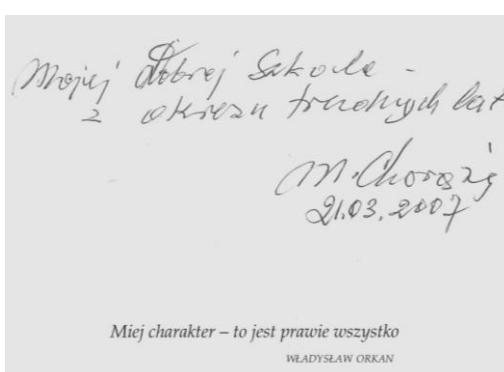 Mojej Dobrej Szkole -
z okresu trudnych lat
M. Chorąży
21.03.2007
Miej charakter – to jest prawie wszystko
WŁADYSŁAW ORKAN